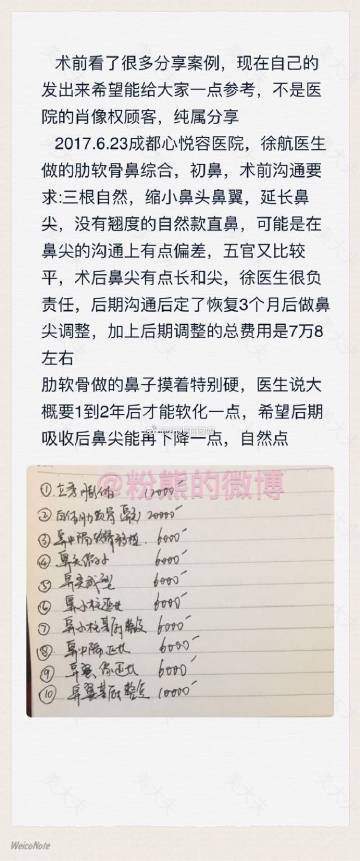 术前看了很多分享案例，现在自己的
发出来希望能给大家一点参考，不是医
院的肖像权顾客，纯属分享
2017.6.23成都心悦容医院，徐航医生
做的肋软骨鼻综合，初鼻，术前沟通要
求:三根自然，缩小鼻头鼻翼，延长鼻
尖，没有翘度的自然款直鼻，可能是在
鼻尖的沟通上有点偏差，五官又比较
平，术后鼻尖有点长和尖，徐医生很负
责任，后期沟通后定了恢复3个月后做鼻
尖调整，加上后期调整的总费用是7万8
左右
肋软骨做的鼻子摸着特别硬，医生说大
概要1到2年后才能软化一点，希望后期
吸收后鼻尖能再下降一点，自然点
@粉熊的微博
①
② 自体肋软骨 20000
③ 鼻中隔 6000
④ 鼻头缩小 6000
⑤ 鼻尖成型 6000
⑥ 鼻小柱延长 6000
⑦ 鼻小柱基底 6000
⑧ 鼻中隔延长 6000
⑨ 鼻翼缘延长 6000
⑩ 鼻翼基底 10000
WeicoNote